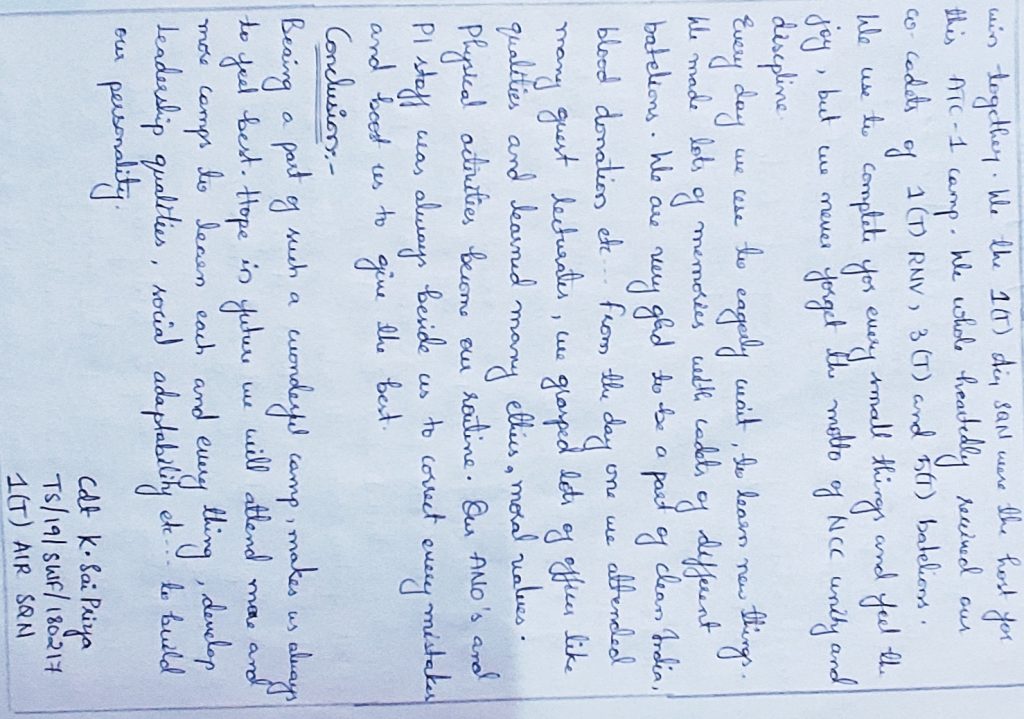 win together. We the 1(T) Air SQN were the host for
this ATC-1 camp. We whole heartedly received our
co-cadets of 1(T) RNV, 3(T) and 5(T) batelions.
We use to complete for every small things and feel the
joy, but we never forget the motto of NCC unity and
discipline.
Every day we use to eagerly wait, to learn new things.
We made lots of memories with cadets of different
batelions. We are very glad to be a part of clean India,
blood donation etc... From the day one we attended
many guest lecturates, we grasped lots of officer like
qualities and learned many ethics, moral values.
Physical activities become our routine. Our ANO's and
PI staff was always beside us to correct every mistakes
and boost us to give the best.
Conclusion:-
Being a part of such a wonderful camp, makes us always
to feel best. Hope in future we will attend more and
more camps to learn each and every thing, develop
leadership qualities, social adaptability etc... to build
our personality.
Cdt K. Sai Priya
TS/19/SWF/180217
1(T) AIR SQN